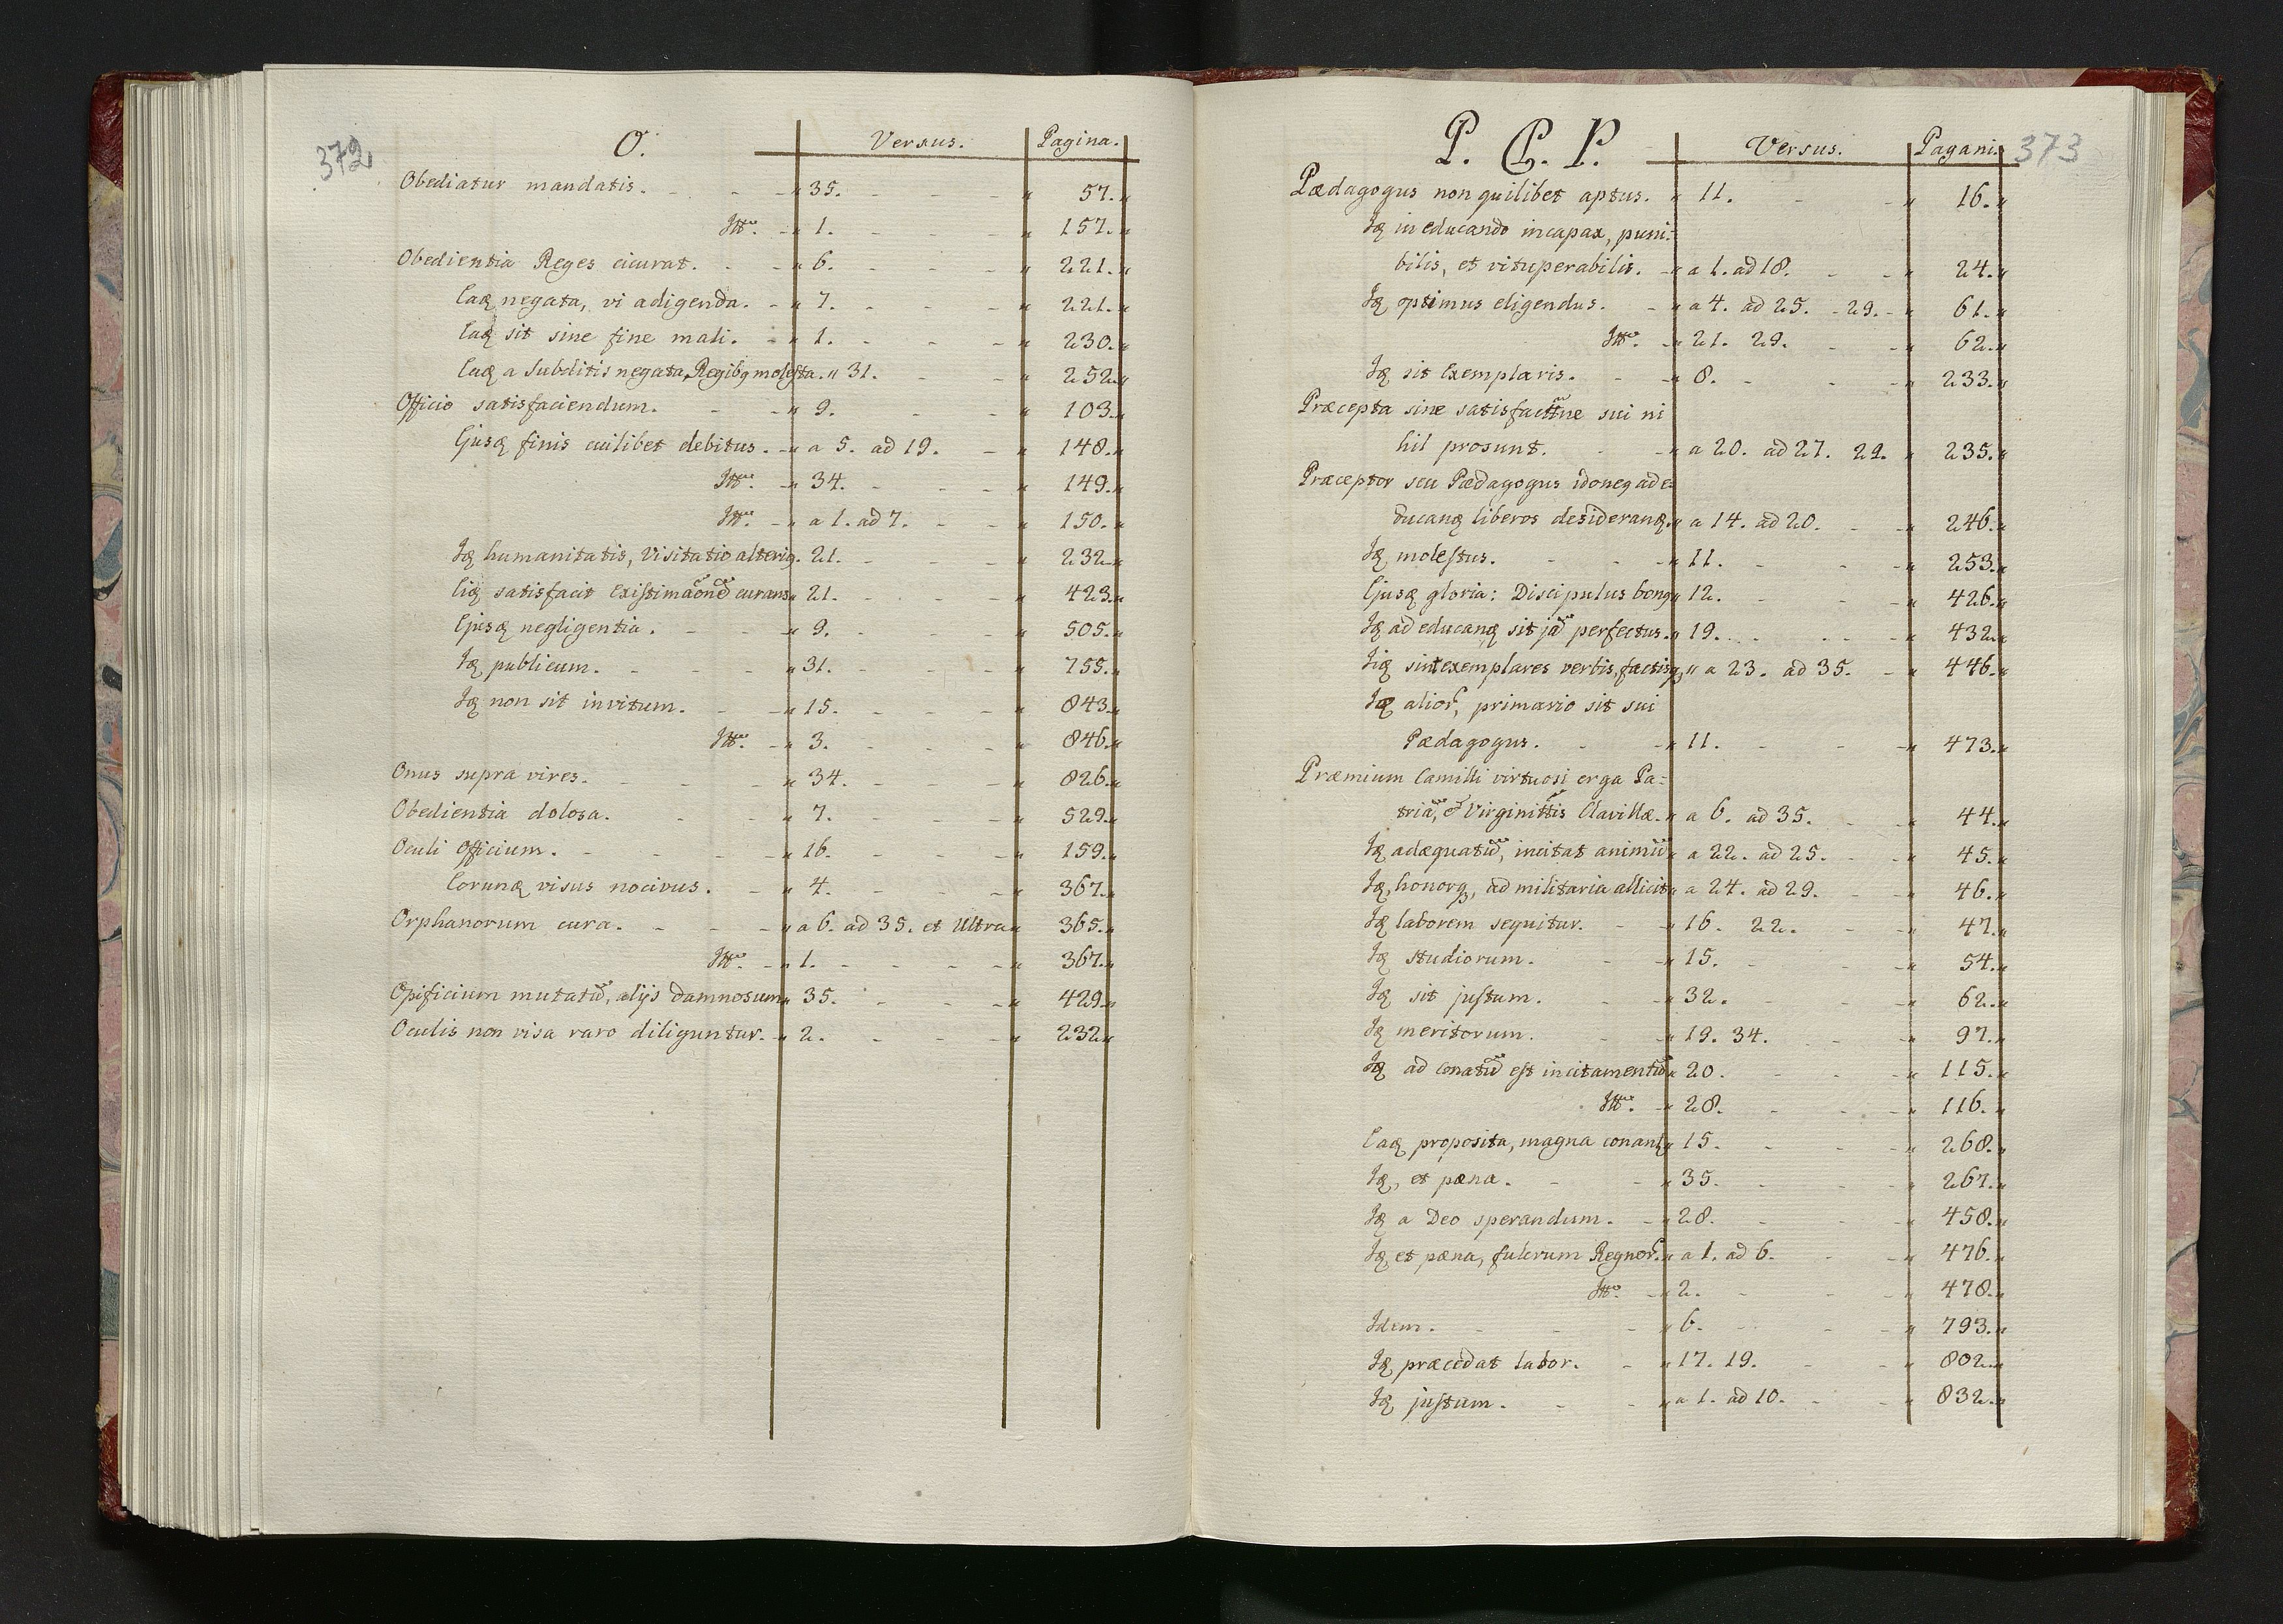 372
O. Versus. Pagina.
Obediatur mandatis. 35. 57.
Itt. 1. 157.
Obedientia Reges cicurat. 6. 221.
Eaq negata, vi adigenda. 7. 221.
Eaq sit sine fine mali. 1. 230.
Eaq a Subditis negata, Regibq molesta. 31. 252.
Officio satisfaciendum. 9. 103.
Ejusq finis cuilibet debitus. a 5. ad 19. 148.
Itt. 34. 149.
Itt. a 1. ad 7. 150.
Iq humanitatis, Visitatio alteriq. 21. 232.
Eiq satisfacit curans 21. 423.
Ejusq negligentia. 9. 505.
Iq publicum. 31. 755.
Iq non sit invitum. 15. 843.
Itt. 3. 846.
Onus supra vires. 34. 826.
Obedientia dolosa. 7. 529.
Oculi Officium. 16. 159.
Eorunq visus nocivus. 4. 367.
Orphanorum cura. a 6. ad 35. et Ultra 365.
Itt. 1. 367.
Opificium mutatū, alijs damnosum 35. 429.
Oculis non visa raro diliguntur. 2. 232.
373
P. P. P. Versus. Pagani.
Pædagogus non quilibet aptus. 11. 16.
Iq in educando incapax, puni:
bilis, et vituperabilis. a 1. ad 18. 24.
Iq optimus eligendus. a 4. ad 25. - 29. 61.
Itt. 21. 29. 62.
Iq sit Exemplaris. 8. 233.
Præcepta sine satisfacttne sui ni
hil prosunt. a 20. ad 27. 29. 235.
Præceptor seu Pædagogus idoneq ad e:
ducanq liberos desideranq. a 14. ad 20. 246.
Iq molestus. 11. 253.
Ejusq gloria: Discipulus bonq 12. 426.
Iq ad educanq sit jā perfectus. 19. 432.
Iiq sint exemplares verbis, factisq, a 23. ad 35. 446.
Iq alior, primario sit sui
Pædagogus. 11. 473.
Præmium Camilli virtuosi erga Pa:
triā, & Virginittis Clavillæ. a 6. ad 35. 44.
Iq adæquatū, incitat animū a 22. ad 25. 45.
Iq, honorq, ad militaria allicit a 24. ad 29. 46.
Iq laborem sequitur. 16. 22. 47.
Iq studiorum. 15. 54.
Iq sit justum. 32. 62.
Iq meritorum. 19. 34. 97.
Iq ad conatū est incitamentū 20. 115.
Itt. 28. 116.
Eaq proposita, magna conantq 15. 268.
Iq, et pæna. 35. 267.
Iq a Deo sperandum. 28. 458.
Iq et pæna, fulcrum Regnor. a 1. ad 6. 476.
Itt. 2. 478.
Idem. 6. 793.
Iq præcedat labor. 17. 19. 802.
Iq justum. a 1. ad 10. 832.